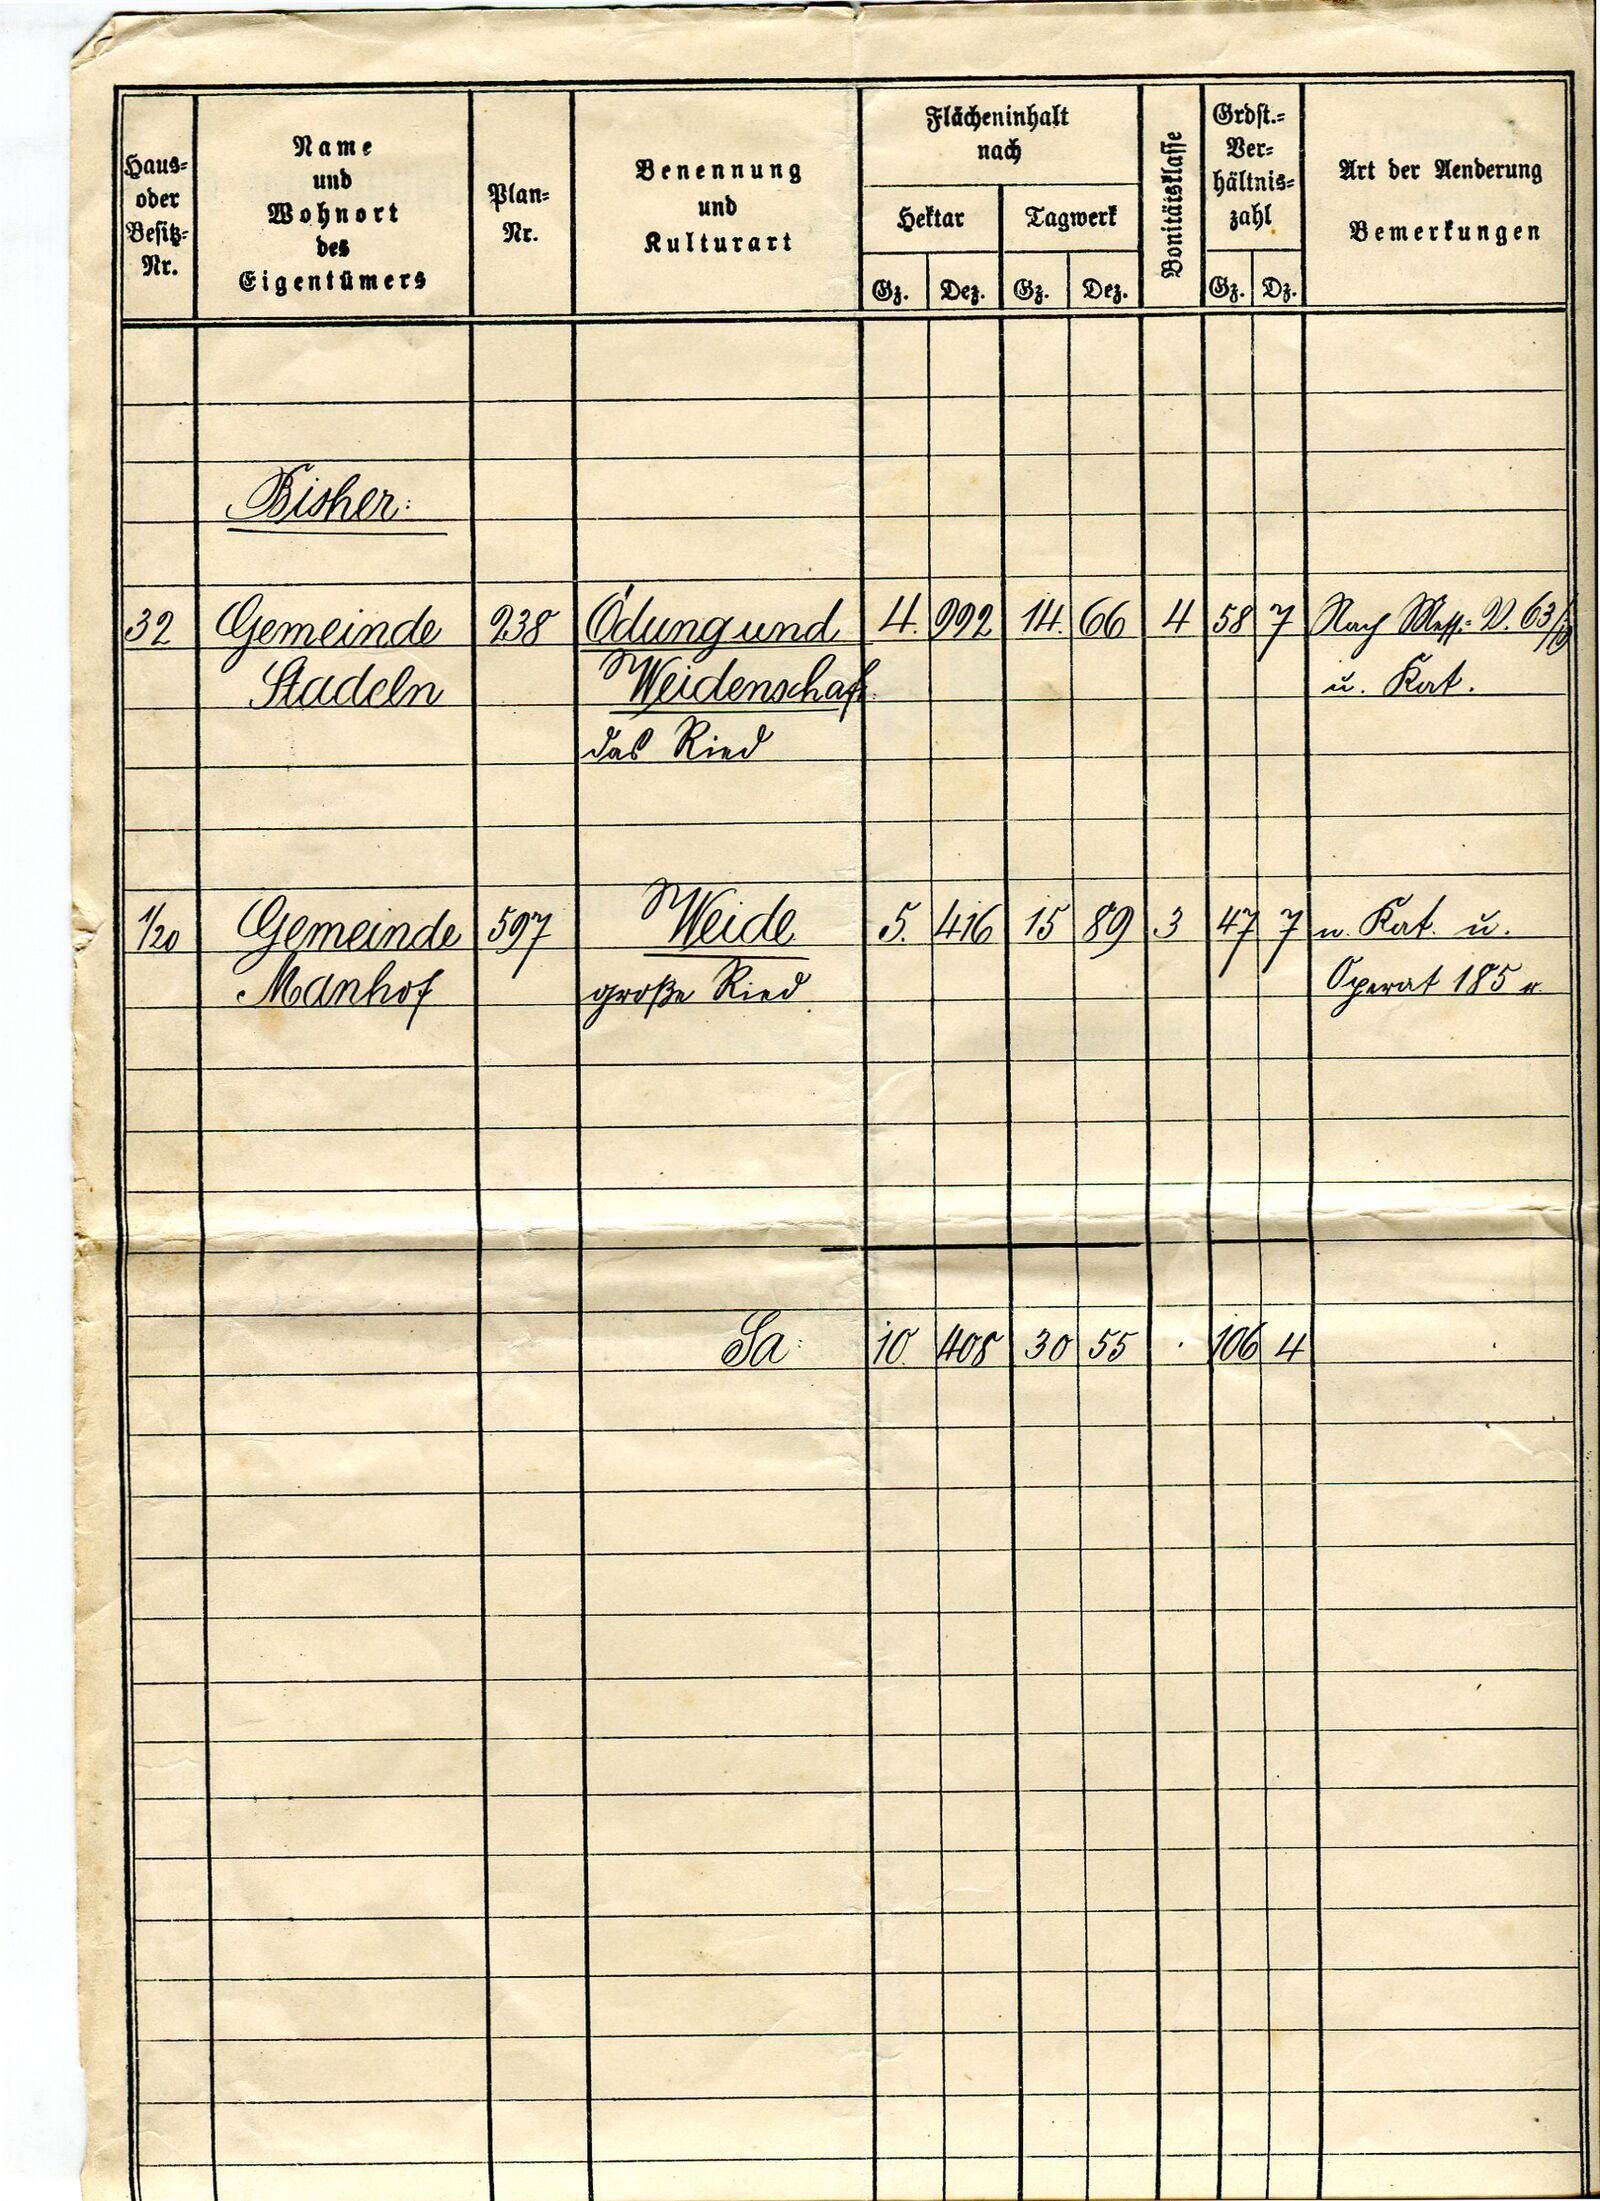 Haus-
oder
Besitz-
Nr.
Name
und
Wohnort
des
Eigentümers
Plan-
Nr.
Benennung
und
Kulturart
Flächeninhalt
nach
Hektar
Tagwerk
Gz. Dez. Gz. Dez.
Bonitätsklasse
Grdst.-
Ver-
hältnis-
zahl
Gz. Dz.
Art der Aenderung
Bemerkungen
Bisher:
32 Gemeinde 238 Ödung und 4. 992 14. 66 4 58 7 Nach Mess.- V. 63/
Stadeln Weidenschaft u. Kat.
das Ried
1/20 Gemeinde 597 Weide 5. 416 15 89 3 47 7 n. Kat. u.
Manhof große Ried Operat 185
Sa: 10. 408 30 55 . 106 4